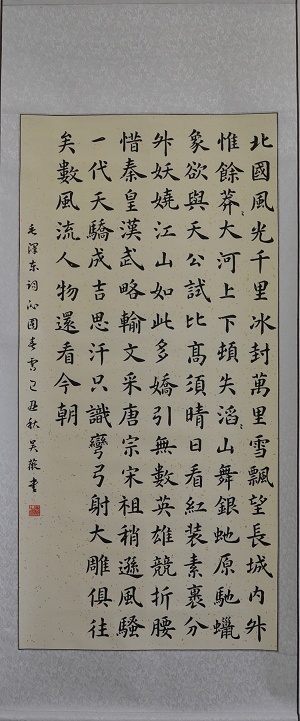 北國風光千里冰封萬里雪飄望長城内外
惟餘莽〻大河上下頓失滔〻山舞銀虵原馳蠟
象欲與天公試比髙須晴日看紅装素裹分
外妖嬈江山如此多嬌引無數英雄競折腰
惜秦皇漢武略輸文采唐宗宋祖稍遜風騷
一代天驕成吉思汗只識彎弓射大雕俱往
矣數風流人物還看今朝
毛澤东词沁園春雪己丑秋吴薇書